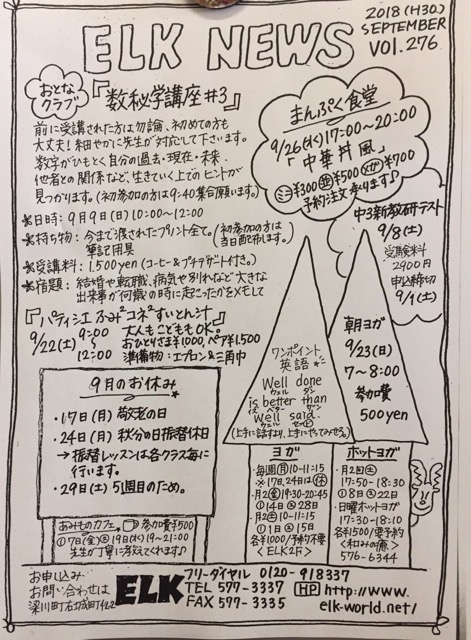 ELK NEWS
2018 (H30.)
SEPTEMBER
VOl. 276
おとな
クラブ
『数秘学講座#3』
前に受講された方は勿論、初めての方も
大丈夫!細やかに先生が対応して下さいます。
数字がひもとく自分の過去・現在・未来、
他者との関係など、生きていく上でのヒントが
見つかります。(初参加の方は9:40集合願います。)
*日時:9月9日(日)10:00~12:00
*持ち物:今まで渡されたプリント全て。(初参加の方は当日配布します。)
筆記用具
*受講料:1,500yen(コーヒー&プチデザート付き。)
*宿題:結婚や転職、病気や別れなど大きな
出来事が何歳の時に起こったかをメモして
まんぷく食堂
9/26(水)17:00~20:00
「中華丼風」
ミニ¥300 並¥500 メガ¥700
予約・注文承ります♪
中3新教研テスト
9/8(土)
受験料
2900円
申込締切
9/1(土)
『パティシエ ふみ²コネ²すいとん汁』
9/22(土) 9:00~12:00
大人もこどももOK。
おひとりさま¥1000、ペア¥1,500
準備物:エプロン&三角巾
9月のお休み
・17日(月) 敬老の日
・24日(月) 秋分の日振替休日
→振替レッスンは各クラス毎に
行います。
・29日(土) 5週目のため。
ワンポイント
英語
Well done
ウェル ダン
is better than
イズ ベター ザン
well said.
ウェル セッド
(上手に話すより、上手にやってみせろ。)
朝ヨガ
9/23(日)
7~8:00
参加費
500yen
ヨガ
・毎週(月)10-11:15
※17日、24日は(休)
・月2(金)19:30-20:45
①14日 ②28日
・月2(土)10-11:15
①1日 ②15日
各¥1000/予約不要
<ELK2F>
ホットヨガ
・月2回(土)
17:50-18:30
①8日 ②22日
・日曜ホットヨガ
17:30-18:10
各¥1500/要予約
<和みの癒>
576-6344
おみものカフェ 参加費¥500
①7日(金)②19日(水)19~21:00
先生が丁寧に教えてくれます♪
お申し込み
お問い合わせは
梁川町右城町
ELK
フリーダイヤル 0120-918337
TEL 577-3337
FAX 577-3335
HP http://www.
elk-world.net/